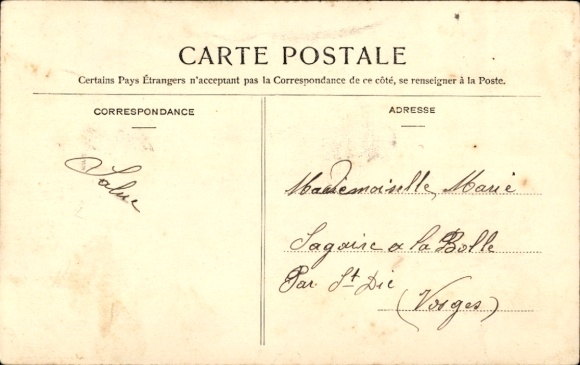 CARTE POSTALE
Certains Pays Étrangers n'acceptant pas la Correspondance de ce côté, se renseigner à la Poste.
CORRESPONDANCE
ADRESSE
Mademoiselle Marie
a la Bolle
Par St Dié
(Vosges)